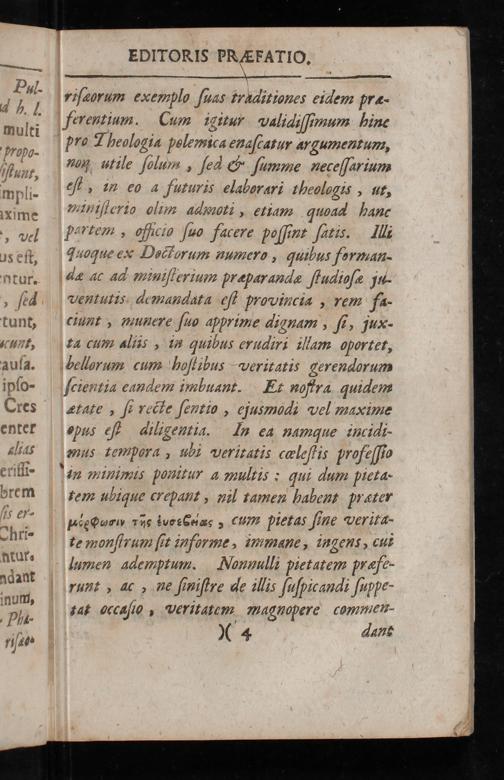 Pul-
ad h. l.
multi
propo-
sistunt,
impli-
axime
, vel
us est,
entur.
, sed
rtunt,
ucunt,
causa.
ipso-
Cres
enter
alias
erissi-
brem
sis er-
Chri-
antur.
ndant
inum,
Pha-
risæo-
EDITORIS PRÆFATIO.
risæorum exemplo suas traditiones eidem præ-
ferentium. Cum igitur validissimum hinc
pro Theologia polemica enascatur argumentum,
non utile solum, sed & summe necessarium
est, in eo a futuris elaborari theologis, ut,
ministerio olim admoti, etiam quoad hanc
partem, officio suo facere possint satis. Illi
quoque ex Doctorum numero, quibus forman-
dæ ac ad ministerium præparandæ studiosæ ju-
ventutis demandata est provincia, rem fa-
ciunt, munere suo apprime dignam, si, jux-
ta cum aliis, in quibus erudiri illam oportet,
bellorum cum hostibus veritatis gerendorum
scientia eandem imbuant. Et nostra quidem
ætate, si recte sentio, ejusmodi vel maxime
opus est diligentia. In ea namque incidi-
mus tempora, ubi veritatis cœlestis professio
in minimis ponitur a multis: qui dum pieta-
tem ubique crepant, nil tamen habent præter
μόρφωσιν τῆς ἐυσεβείας, cum pietas sine verita-
te monstrum sit informe, immane, ingens, cui
lumen ademptum. Nonnulli pietatem præfe-
runt, ac, ne sinistre de illis suspicandi suppe-
tat occasio, veritatem magnopere commen-
)( 4 dant